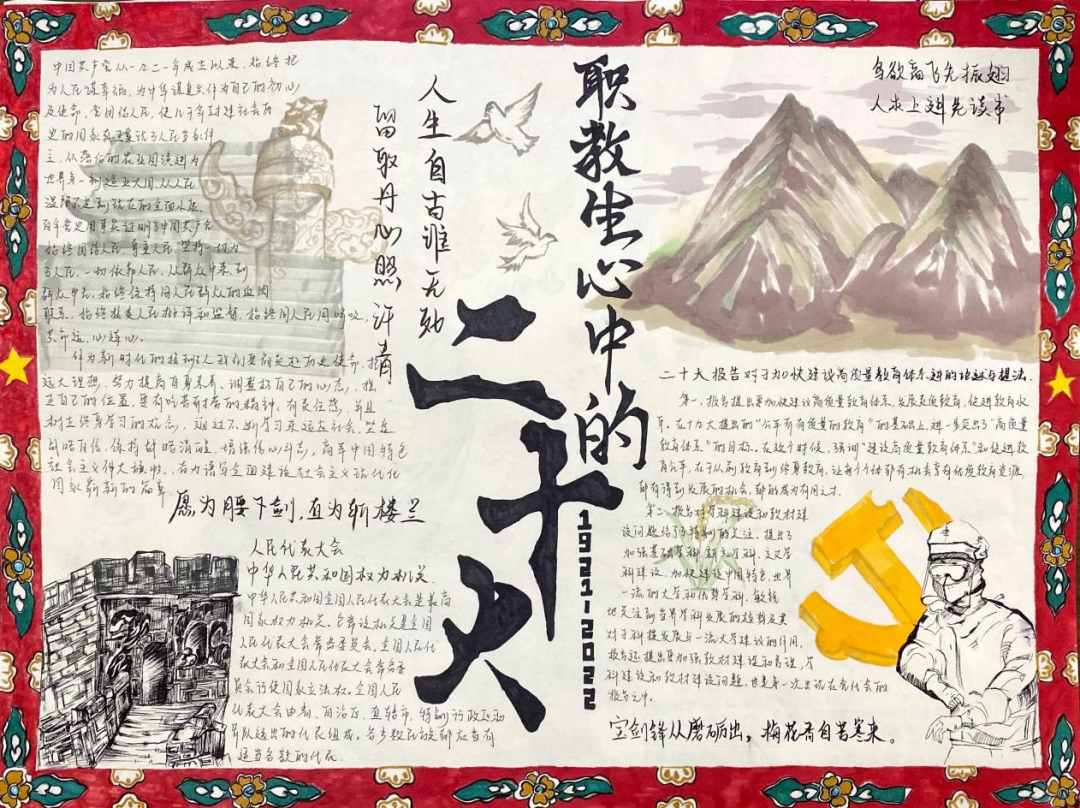 职教生心中的
二十大
1921-2022
中国共产党从一九二一年成立以来，始终把
为人民谋幸福，为中华谋复兴作为自己的初心
及使命，
世界第一制造业大国，从人民
百年党史用事实证明了中国共产党
始终团结人民 尊重人民 坚持一切为
了人民，一切依靠人民，从群众中来，到
群众中去，始终保持同人民群众的血肉
联系，始终接受人民批评和监督，始终同人民同呼吸，
共命运，心连心。
作为新时代的接班人我们要肩负起历史使命，
远大理想，努力提高自身素养，调整好自己的心态，
正自己的位置，要有吃苦耐劳的精神，有责任感，并且
树立终身学习的概念，通过不断学习来适应社会，坚定
战略自信，保持战略清醒，增强信心斗志，高举中国特色
社会主义伟大旗帜，奋力谱写全面建设社会主义现代化
国家崭新的篇章。
愿为腰下剑，直为斩楼兰
人生自古谁无死
留取丹心照汗青
鸟欲高飞先振翅
人求上进先读书
人民代表大会
中华人民共和国权力机关。
中华人民共和国全国人民代表大会是最高
国家权力机关。它常设机关是全国
人民代表大会常务委员会。全国人民代
表大会和全国人民代表大会常务委
员会行使国家立法权。全国人民
代表大会由省、自治区、直辖市、特别行政区和
军队选出的代表组成。各少数民族都应当有
适当名额的代表。
二十大报告对于加快建设高质量教育体系进的论述与提法。
第一，报告提出要加快建设高质量教育体系，发展素质教育，促进教育公
平。在十九大提出的“公平而有质量的教育”的基础上，进一步突出了“高质量
教育体系”的目标。在这个时候，强调“建设高质量教育体系”和促进教
育公平，在于从制教育到终身教育，让每个个体都有机会享有优质教育资源，
都有得到发展的机会，都能成为有用之才。
第二，报告对学科建设和教材建
设问题给了特别的关注，提出了
加强基础学科、新兴学科、交叉学
科建设，加快建设中国特色、世界
一流的大学和优势学科，敏锐
地关注到当前学科发展的趋势及其
对于科技发展与一流大学建设的作用，
报告还提出要加强教材建设和管理，学
科建设和教材建设问题，也是第一次出现在党代会的
报告之中。
宝剑锋从磨砺出，梅花香自苦寒来。